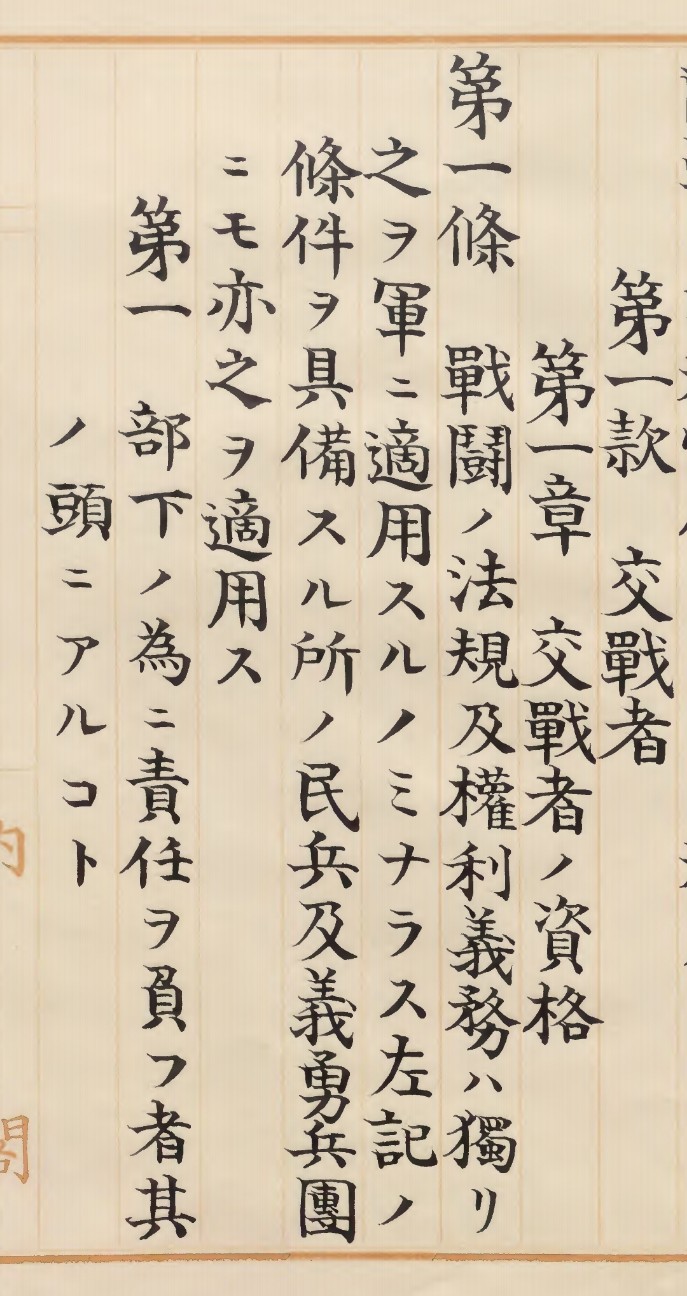 第一款　交戰者
第一章　交戰者ノ資格
第一條　戰鬪ノ法規及權利義務ハ獨リ
之ヲ軍ニ適用スルノミナラス左記ノ
條件ヲ具備スル所ノ民兵及義勇兵團
ニモ亦之ヲ適用ス
第一　部下ノ為ニ責任ヲ負フ者其
ノ頭ニアルコト
閣